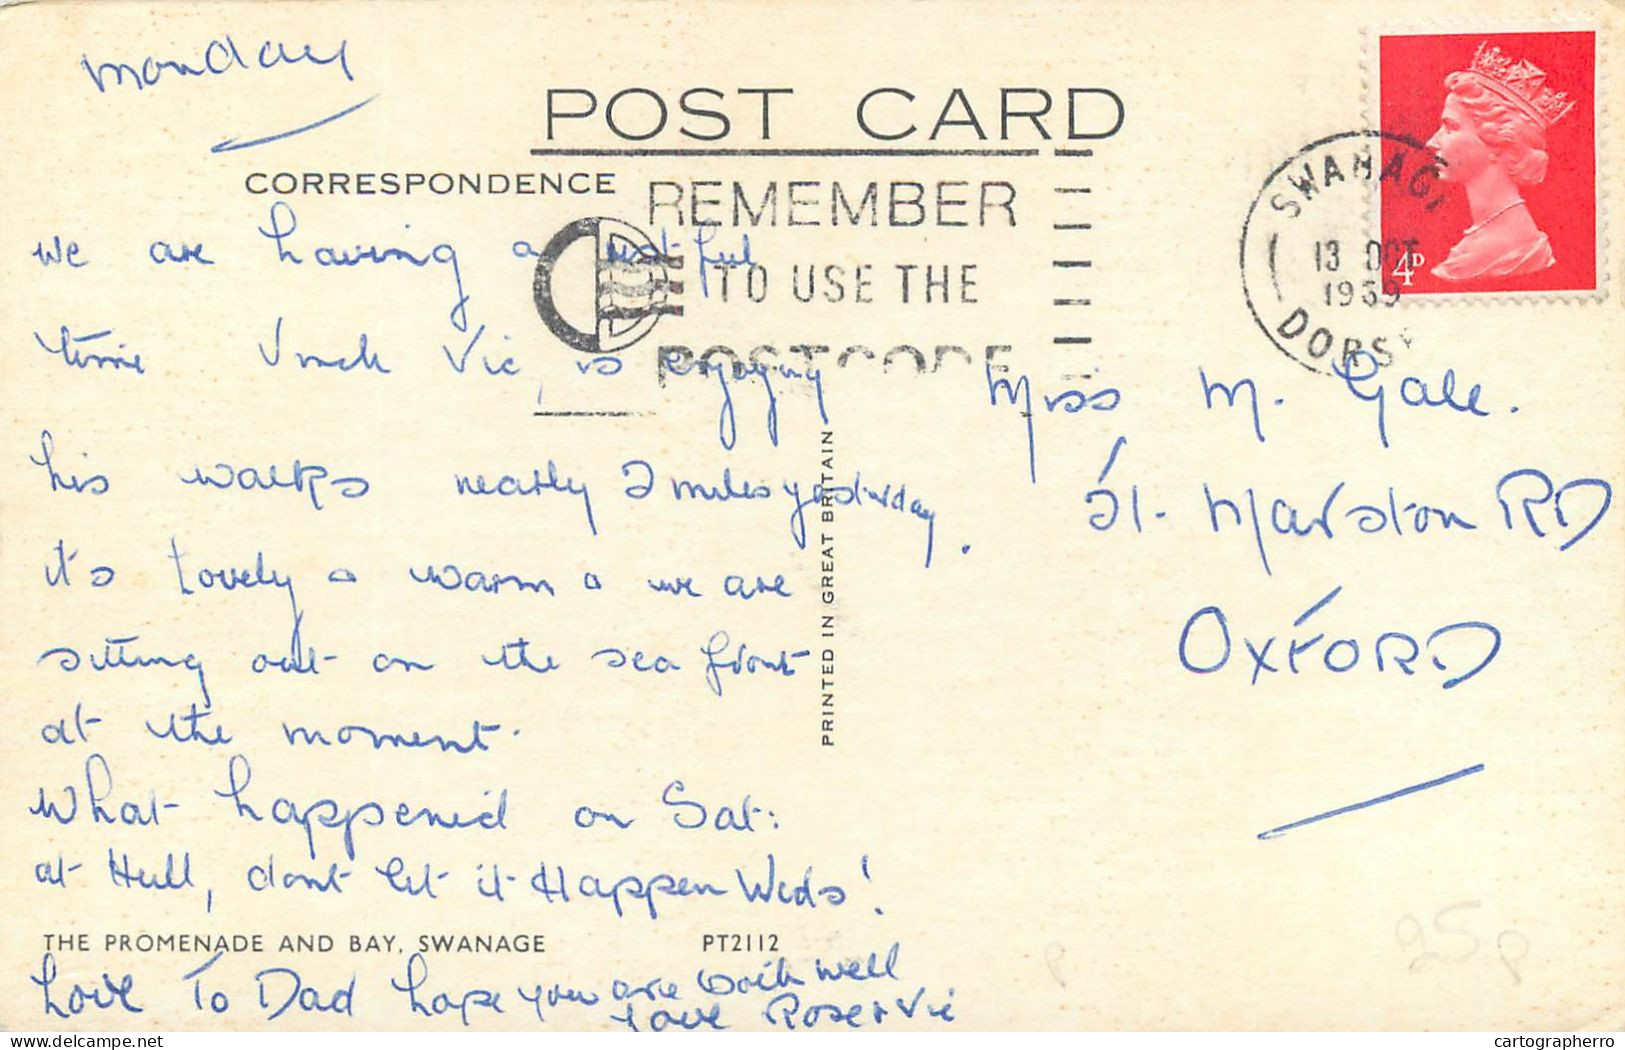 Monday
POST CARD
CORRESPONDENCE
REMEMBER
TO USE THE
POSTCODE
SWANAGE
13 OCT
1969
DORSET
4D
we are having a restful
time Uncle Vic, is enjoying
his walks nearly 2 miles yesterday.
it's lovely & warm & we are
sitting out on the sea front
at the moment.
What happened on Sat:
at Hull, dont let it Happen Weds!
THE PROMENADE AND BAY, SWANAGE PT2112
Love To Dad hope you are both well
Love Rose & Vic
PRINTED IN GREAT BRITAIN
Miss M. Gale.
51. Marston RD
OXFORD
25p
cartographerro